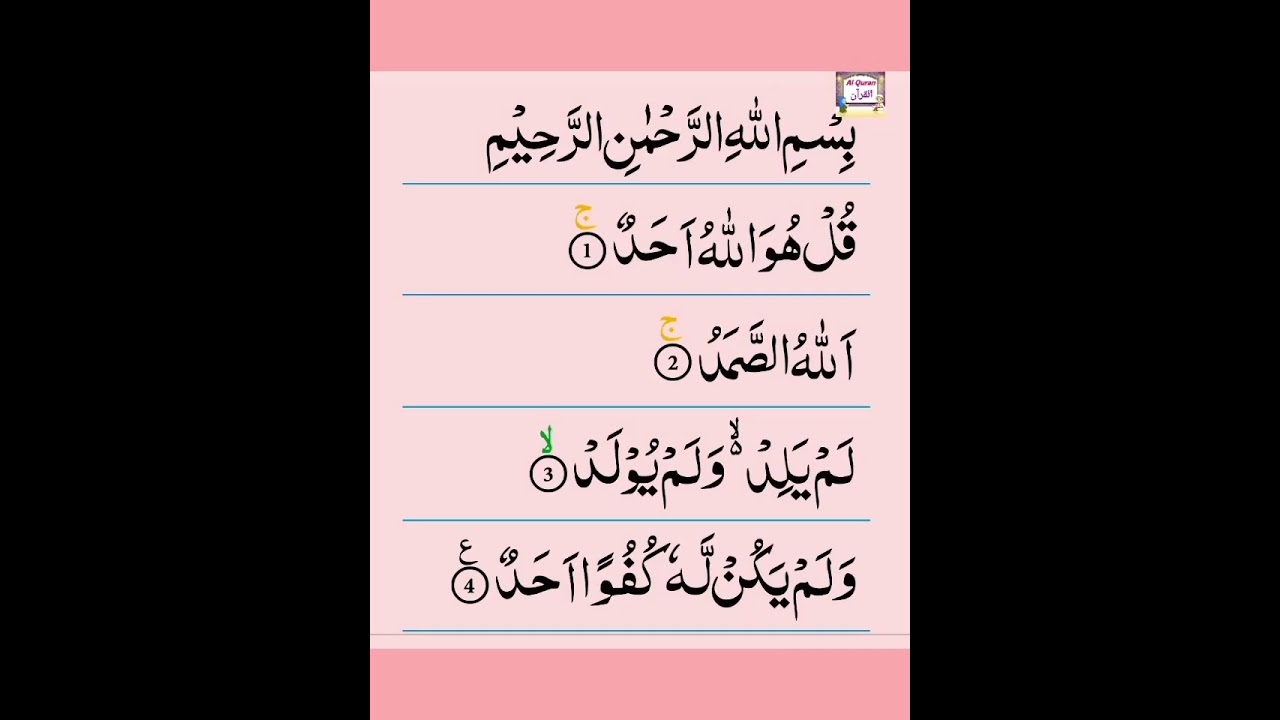 Al Quran
القرآن
بِسْمِ اللّٰهِ الرَّحْمٰنِ الرَّحِيْمِ
قُلْ هُوَ اللّٰهُ اَحَدٌ ۚ 1
اَللّٰهُ الصَّمَدُ ۚ 2
لَمْ يَلِدْ ۙ۬ وَلَمْ يُوْلَدْ ۙ 3
وَلَمْ يَكُنْ لَّهٗ كُفُوًا اَحَدٌ ع 4